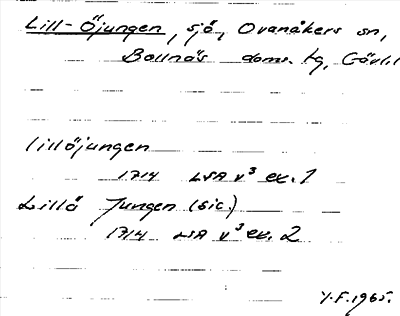 Lill-Öjungen, sjö, Ovanåkers sn,
Bollnäs doms. tg, Gävlil
lillöjungen
1714 LSA V³ ex. 1
Lillå Jungen (sic.)
1714 LSA V³ ex. 2
Y.F. 1965.